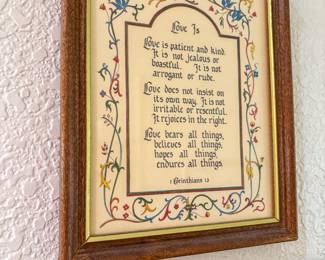 Love Is
Love is patient and kind.
It is not jealous or
boastful. It is not
arrogant or rude.
Love does not insist on
its own way. It is not
irritable or resentful.
It rejoices in the right.
Love bears all things,
believes all things,
hopes all things,
endures all things.
1 Corinthians 13